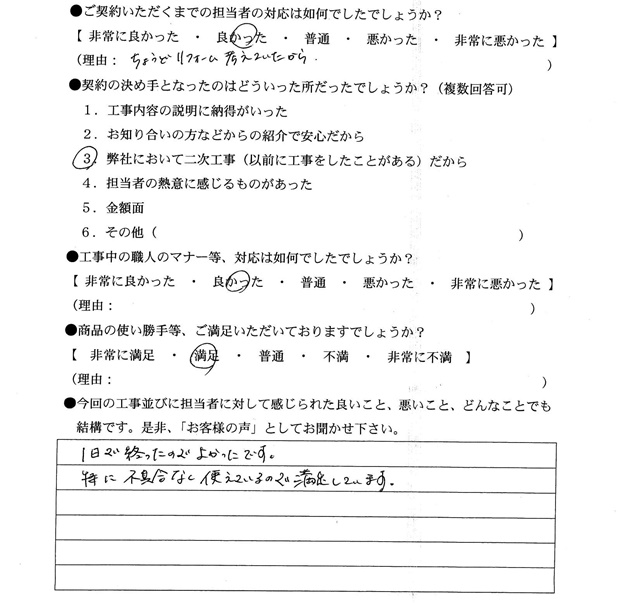 ●ご契約いただくまでの担当者の対応は如何でしたでしょうか？
【 非常に良かった ・ 良かった ・ 普通 ・ 悪かった ・ 非常に悪かった 】
(理由： ちょうどリフォーム考えていたから. )
●契約の決め手となったのはどういった所だったでしょうか？（複数回答可）
１．工事内容の説明に納得がいった
２．お知り合いの方などからの紹介で安心だから
３．弊社において二次工事（以前に工事をしたことがある）だから
４．担当者の熱意に感じるものがあった
５．金額面
６．その他（ )
●工事中の職人のマナー等、対応は如何でしたでしょうか？
【 非常に良かった ・ 良かった ・ 普通 ・ 悪かった ・ 非常に悪かった 】
(理由： )
●商品の使い勝手等、ご満足いただいておりますでしょうか？
【 非常に満足 ・ 満足 ・ 普通 ・ 不満 ・ 非常に不満 】
(理由： )
●今回の工事並びに担当者に対して感じられた良いこと、悪いこと、どんなことでも
結構です。是非、「お客様の声」としてお聞かせ下さい。
1日で終ったのでよかったです。
特に不具合なく使えているので満足しています.